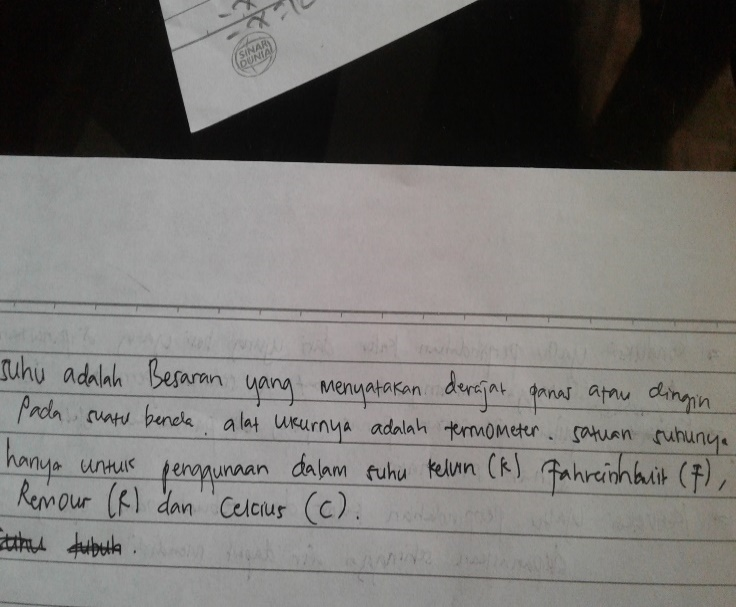 SINAR
DUNIA
suhu adalah Besaran yang menyatakan derajat panas atau dingin
Pada suatu benda. alat ukurnya adalah termometer. satuan suhunya
hanya untuk penggunaan dalam suhu kelvin (K) Fahreinhbuit (F),
Remour (R) dan Celcius (C).
suhu tubuh.